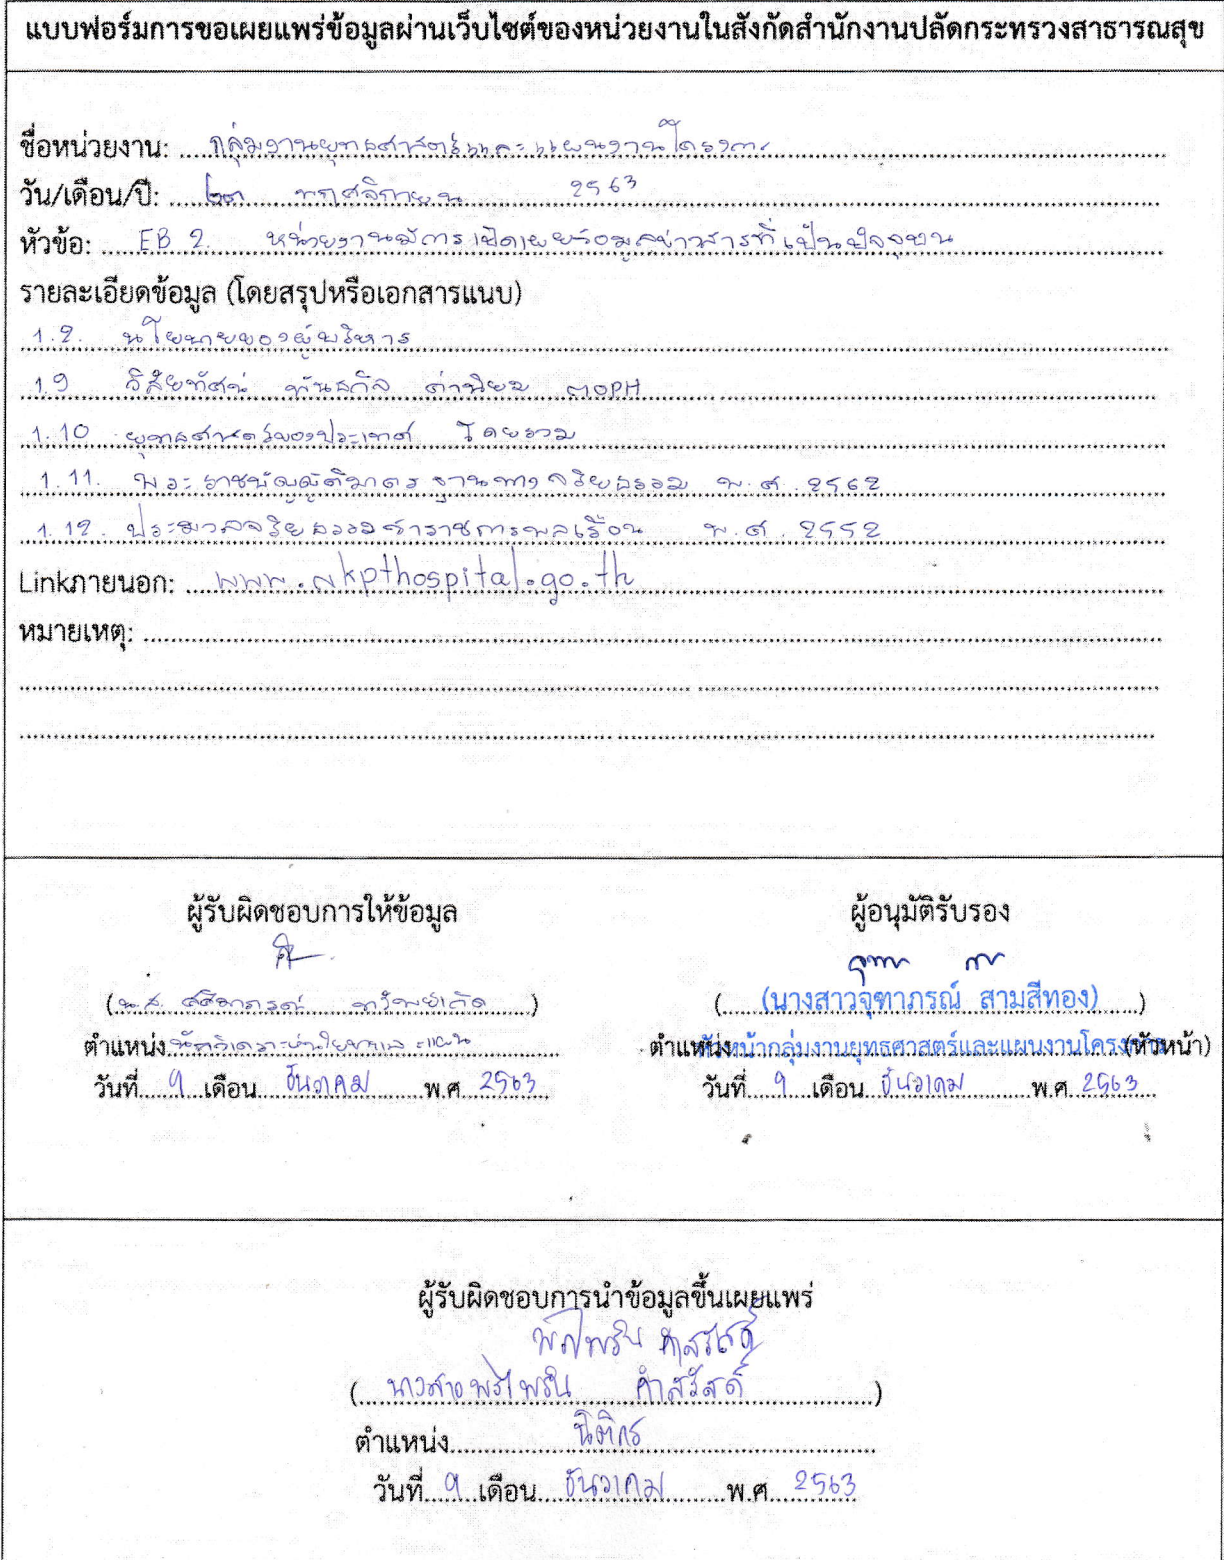 แบบฟอร์มการขอเผยแพร่ข้อมูลผ่านเว็บไซต์ของหน่วยงานในสังกัดสำนักงานปลัดกระทรวงสาธารณสุข
ชื่อหน่วยงาน: กลุ่มงานยุทธศาสตร์และแผนงานโครงการ
วัน/เดือน/ปี: ๒๓ พฤศจิกายน 2563
หัวข้อ: EB 2. หน่วยงานมีการเปิดเผยข้อมูลข่าวสารที่เป็นปัจจุบัน
รายละเอียดข้อมูล (โดยสรุปหรือเอกสารแนบ)
1.2. นโยบายของผู้บริหาร
1.9 วิสัยทัศน์ พันธกิจ ค่านิยม MOPH
1.10 ยุทธศาสตร์ของประเทศ โดยรวม
1.11. พระราชบัญญัติมาตรฐานทางจริยธรรม พ.ศ. 2562
1.12. ประมวลจริยธรรมข้าราชการพลเรือน พ.ศ. 2552
Linkภายนอก: www.nkpthospital.go.th
หมายเหตุ:
ผู้รับผิดชอบการให้ข้อมูล
(น.ส. ทรัพย์เกิด)
ตำแหน่ง นักวิเคราะห์นโยบายและแผน
วันที่ 9 เดือน ธันวาคม พ.ศ. 2563
ผู้อนุมัติรับรอง
(นางสาวจุฑาภรณ์ สามสีทอง)
ตำแหน่งหัวหน้ากลุ่มงานยุทธศาสตร์และแผนงานโครงการ(หัวหน้า)
วันที่ 9 เดือน ธันวาคม พ.ศ. 2563
ผู้รับผิดชอบการนำข้อมูลขึ้นเผยแพร่
(นางสาว คำสวัสดิ์)
ตำแหน่ง นิติกร
วันที่ 9 เดือน ธันวาคม พ.ศ. 2563